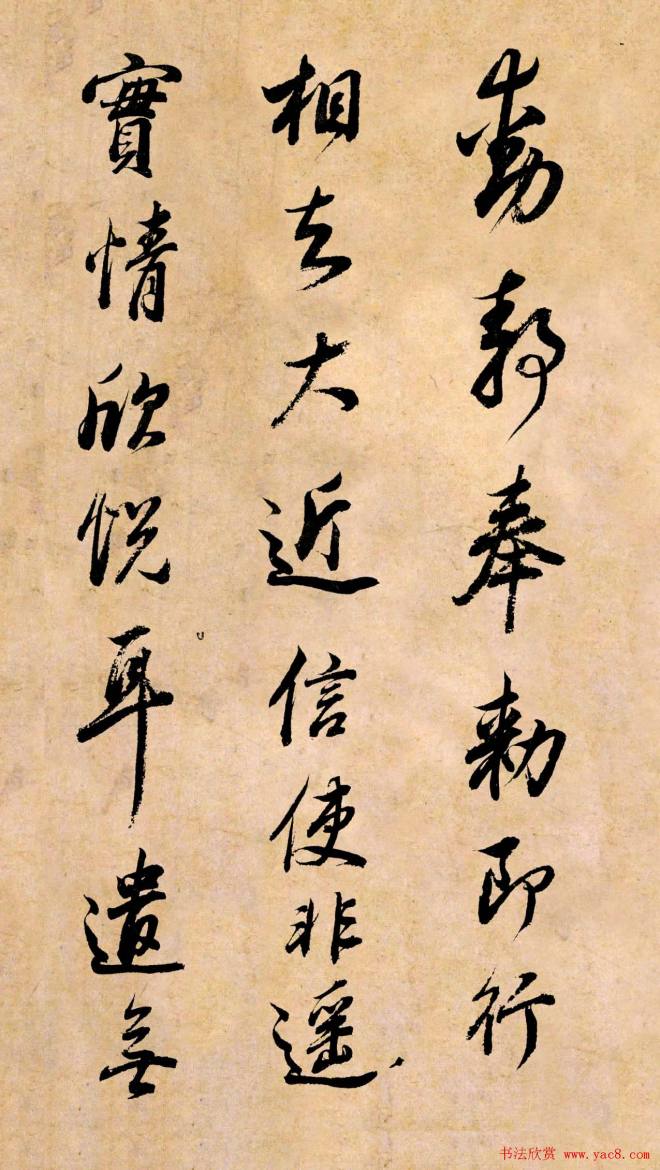 奉勅即行
相去大近信使非遥
實情欣悦耳無
书法欣赏 www.yac8.com